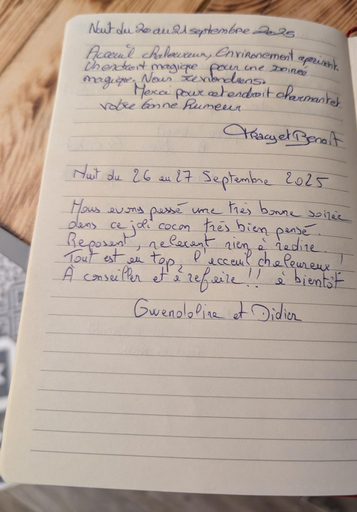 Nuit du 20 au 21 septembre 2025
Acceuil chaleureux, Environement apaisant
L'endroit magique pour une soirée
magique. Nous reviendrons
Merci pour cet endroit charmant et
votre bonne humeur
Tracy et Benoit
Nuit du 26 au 27 Septembre 2025
Nous avons passé une très bonne soirée
dans ce joli cocon très bien pensé.
Reposant, relaxant rien à redire.
Tout est au top, l'acceuil chaleureux !
À conseiller et à refaire !! à bientôt
Gwendoline et Didier